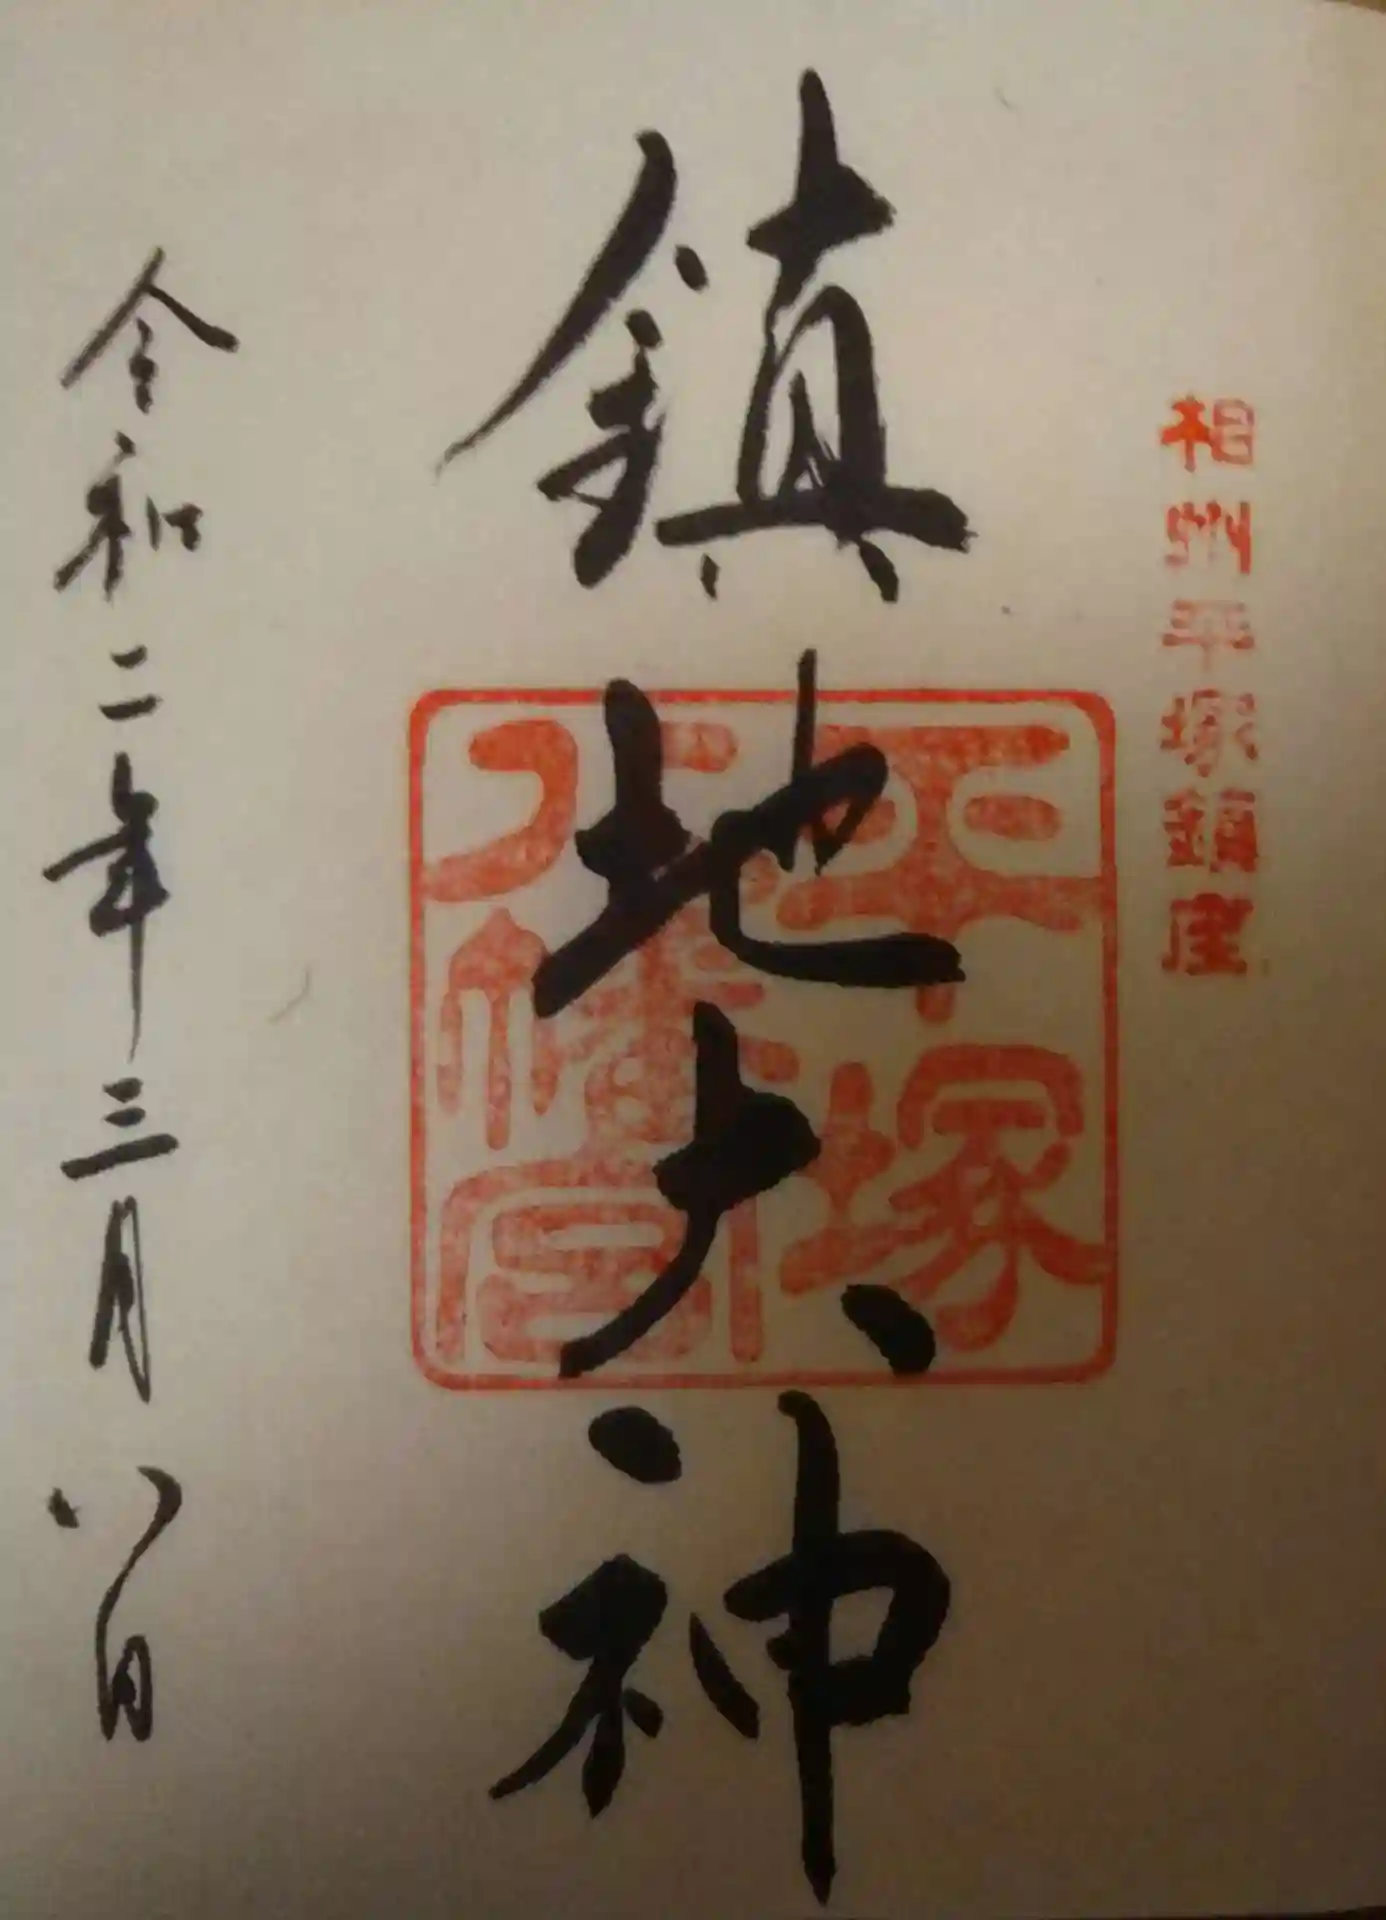 相州平塚鎮座
鎮地大神
平塚
八幡宮
令和二年三月八日